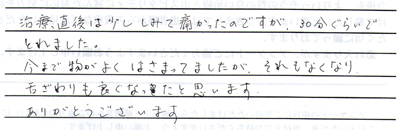 治療、直後は少ししみて痛かったのですが、30分ぐらいで
とれました。
今まで物がよくはさまってましたが、それもなくなり、
舌ざわりも良くなったと思います。
ありがとうございます